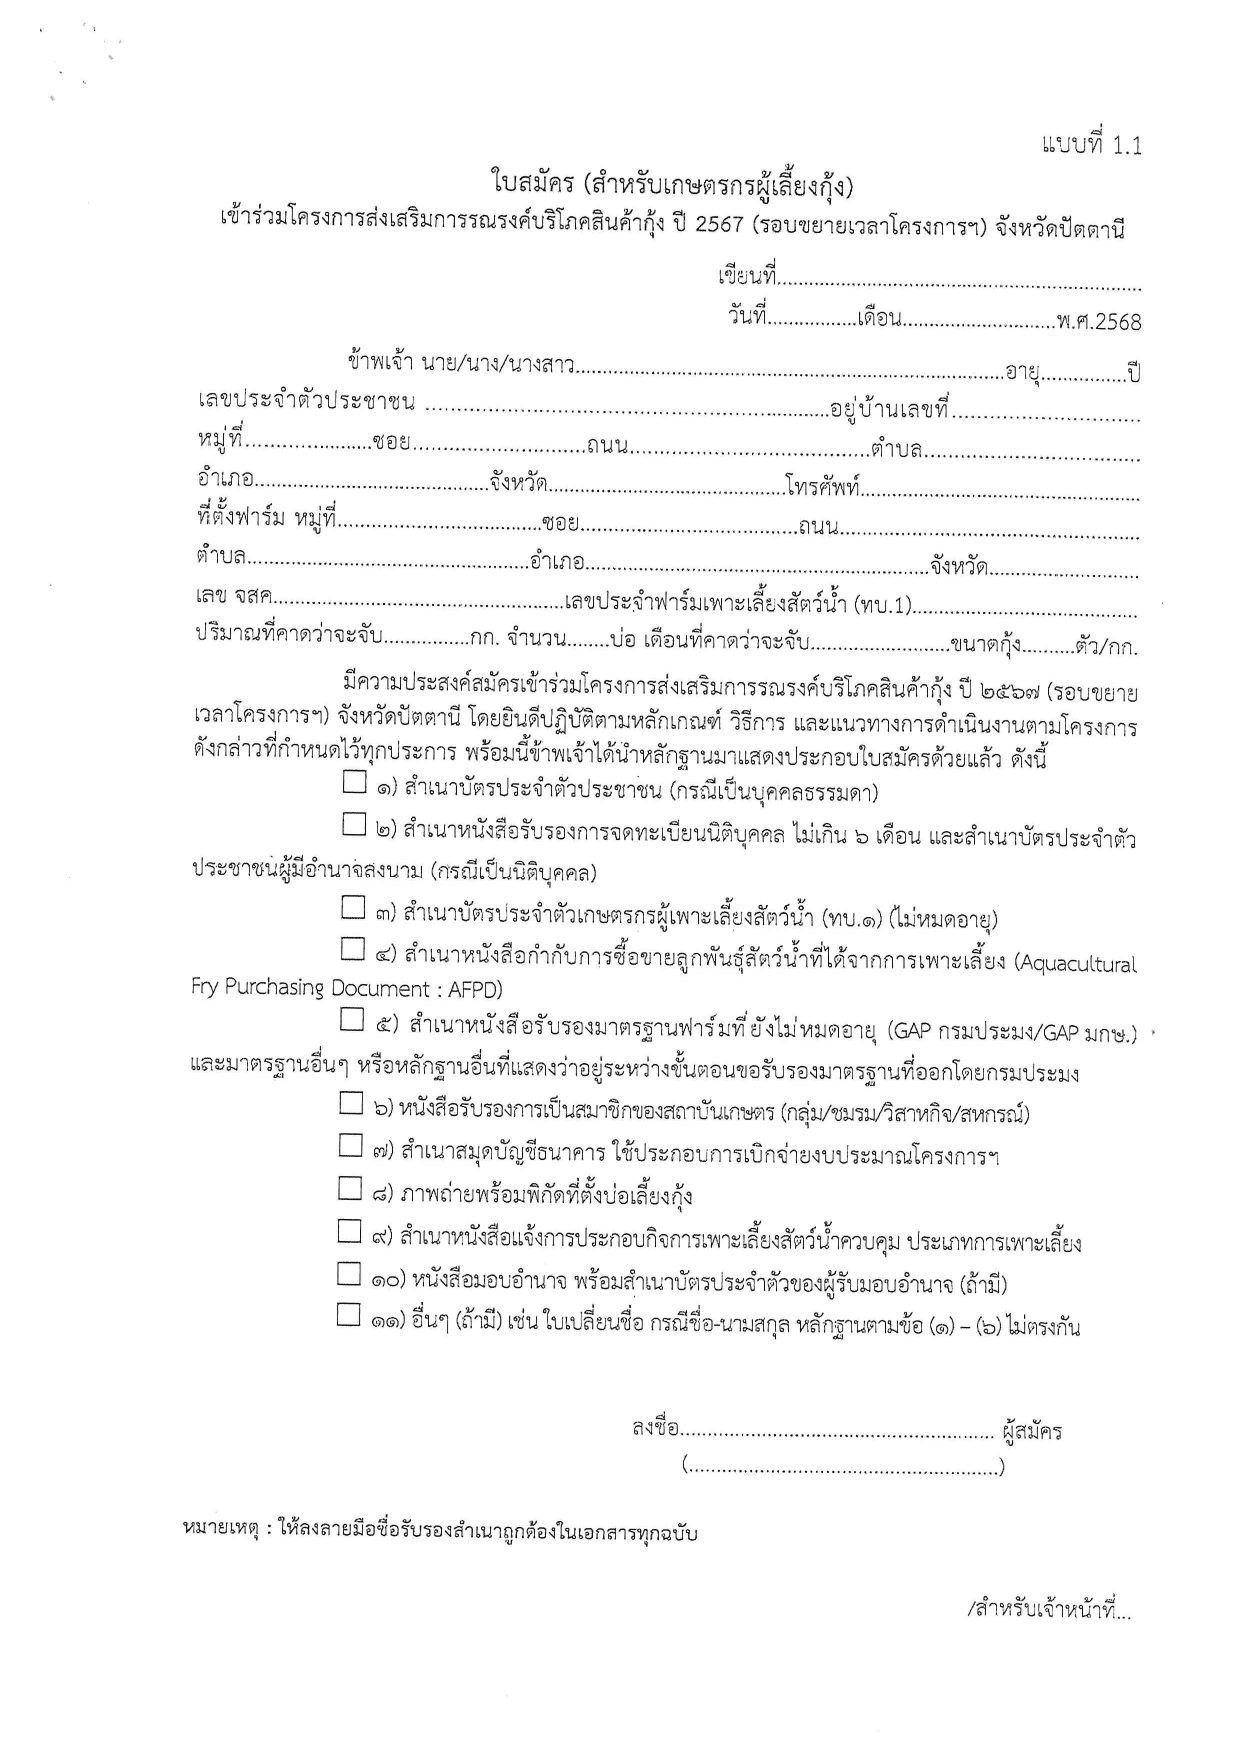 แบบที่ 1.1
ใบสมัคร (สำหรับเกษตรกรผู้เลี้ยงกุ้ง)
เข้าร่วมโครงการส่งเสริมการรณรงค์บริโภคสินค้ากุ้ง ปี 2567 (รอบขยายเวลาโครงการฯ) จังหวัดปัตตานี
เขียนที่....................................................................
วันที่.................เดือน.............................พ.ศ.2568
ข้าพเจ้า นาย/นาง/นางสาว.................................................................................อายุ................ปี
เลขประจำตัวประชาชน ............................................................................อยู่บ้านเลขที่...................................
หมู่ที่........................ซอย.................................ถนน.............................................ตำบล.........................................
อำเภอ............................................จังหวัด.............................................โทรศัพท์....................................................
ที่ตั้งฟาร์ม หมู่ที่......................................ซอย.........................................ถนน........................................................
ตำบล.....................................................อำเภอ.................................................................จังหวัด............................
เลข จสค......................................................เลขประจำฟาร์มเพาะเลี้ยงสัตว์น้ำ (ทบ.1)..........................................
ปริมาณที่คาดว่าจะจับ................กก. จำนวน........บ่อ เดือนที่คาดว่าจะจับ..........................ขนาดกุ้ง..........ตัว/กก.
มีความประสงค์สมัครเข้าร่วมโครงการส่งเสริมการรณรงค์บริโภคสินค้ากุ้ง ปี ๒๕๖๗ (รอบขยาย
เวลาโครงการฯ) จังหวัดปัตตานี โดยยินดีปฏิบัติตามหลักเกณฑ์ วิธีการ และแนวทางการดำเนินงานตามโครงการ
ดังกล่าวที่กำหนดไว้ทุกประการ พร้อมนี้ข้าพเจ้าได้นำหลักฐานมาแสดงประกอบใบสมัครด้วยแล้ว ดังนี้
☐ ๑) สำเนาบัตรประจำตัวประชาชน (กรณีเป็นบุคคลธรรมดา)
☐ ๒) สำเนาหนังสือรับรองการจดทะเบียนนิติบุคคล ไม่เกิน ๖ เดือน และสำเนาบัตรประจำตัว
ประชาชนผู้มีอำนาจลงนาม (กรณีเป็นนิติบุคคล)
☐ ๓) สำเนาบัตรประจำตัวเกษตรกรผู้เพาะเลี้ยงสัตว์น้ำ (ทบ.๑) (ไม่หมดอายุ)
☐ ๔) สำเนาหนังสือกำกับการซื้อขายลูกพันธุ์สัตว์น้ำที่ได้จากการเพาะเลี้ยง (Aquacultural
Fry Purchasing Document : AFPD)
☐ ๕) สำเนาหนังสือรับรองมาตรฐานฟาร์มที่ยังไม่หมดอายุ (GAP กรมประมง/GAP มกษ.)
และมาตรฐานอื่นๆ หรือหลักฐานอื่นที่แสดงว่าอยู่ระหว่างขั้นตอนขอรับรองมาตรฐานที่ออกโดยกรมประมง
☐ ๖) หนังสือรับรองการเป็นสมาชิกของสถาบันเกษตร (กลุ่ม/ชมรม/วิสาหกิจ/สหกรณ์)
☐ ๗) สำเนาสมุดบัญชีธนาคาร ใช้ประกอบการเบิกจ่ายงบประมาณโครงการฯ
☐ ๘) ภาพถ่ายพร้อมพิกัดที่ตั้งบ่อเลี้ยงกุ้ง
☐ ๙) สำเนาหนังสือแจ้งการประกอบกิจการเพาะเลี้ยงสัตว์น้ำควบคุม ประเภทการเพาะเลี้ยง
☐ ๑๐) หนังสือมอบอำนาจ พร้อมสำเนาบัตรประจำตัวของผู้รับมอบอำนาจ (ถ้ามี)
☐ ๑๑) อื่นๆ (ถ้ามี) เช่น ใบเปลี่ยนชื่อ กรณีชื่อ-นามสกุล หลักฐานตามข้อ (๑) – (๖) ไม่ตรงกัน
ลงชื่อ.......................................................... ผู้สมัคร
(.........................................................)
หมายเหตุ : ให้ลงลายมือชื่อรับรองสำเนาถูกต้องในเอกสารทุกฉบับ
/สำหรับเจ้าหน้าที่...